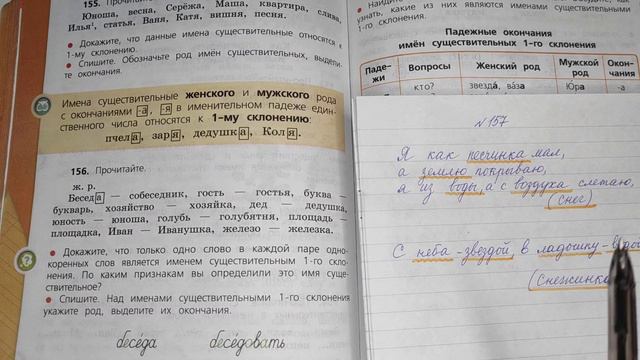 155. Прочитайте.
Юноша, весна, Серёжа, Маша, квартира, слива,
Илья¹, статья, Ваня, Катя, вишня, песня.
● Докажите, что данные имена существительные относятся к
1-му склонению.
● Спишите. Обозначьте род имён существительных, выдели-
те окончания.
Имена существительные женского и мужского рода
с окончаниями -а, -я в именительном падеже един-
ственного числа относятся к 1-му склонению:
пчела, заря, дедушка, Коля.
156. Прочитайте.
ж. р.
Беседа — собеседник, гость — гостья, буква —
букварь, хозяйство — хозяйка, дед — дедушка,
юность — юноша, голубь — голубятня, площадь —
площадка, Иван — Иванушка, железо — железка.
● Докажите, что только одно слово в каждой паре одно-
коренных слов является именем существительным 1-го скло-
нения. По каким признакам вы определили это имя суще-
ствительное?
● Спишите. Над именами существительными 1-го склонения
укажите род, выделите их окончания.
беседа беседовать
узнать, какие из них являются именами существительными
1-го склонения.
Падежные окончания
имён существительных 1-го склонения
Паде-
жи Вопросы Женский род Мужской
род Окон-
чания
кто? звезда, ваза Юра -а
№157
Я как песчинка мал,
а землю покрываю,
я из воды, а с воздуха слетаю,
(снег)
С неба - звездой, в ладошку -
(Снежинка